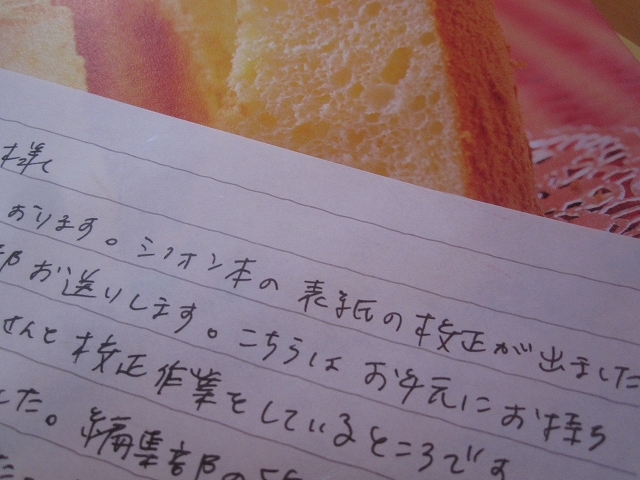 様
おります。シフォン本の表紙の校正が出ました
部お送りします。こちらはお手元にお持ち
さんと校正作業をしているところです
した。編集部の